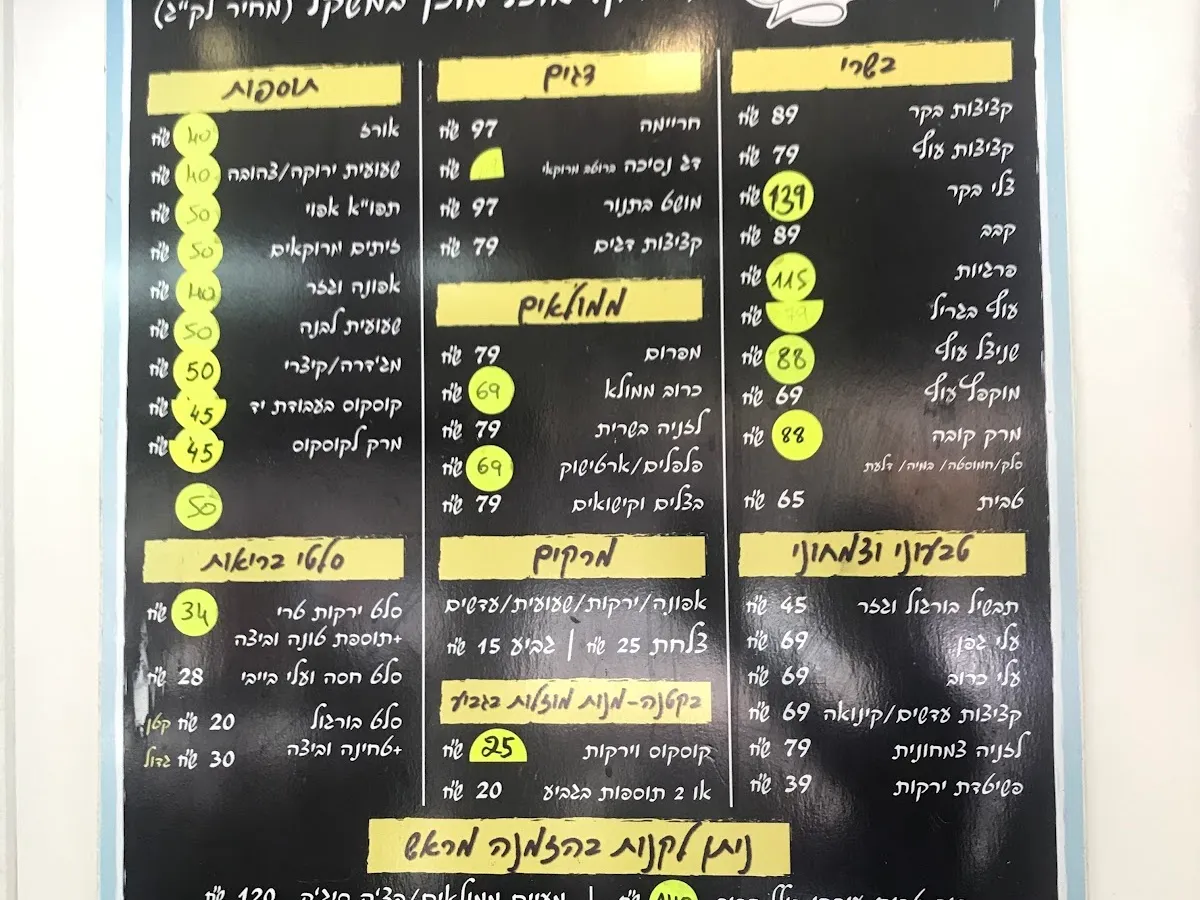 אוכל מוכן במשקל (מחיר לק"ג)
בשרי
קציצות בקר 89 ש"ח
קציצות עוף 79 ש"ח
צלי בקר 139 ש"ח
קבב 89 ש"ח
פרגיות 115 ש"ח
עוף בגריל 79 ש"ח
שניצל עוף 88 ש"ח
מוקפץ עוף 69 ש"ח
מרק קובה 88 ש"ח
סלק/חמוסטה/ במיה/ דלעת
טבית 65 ש"ח
טבעוני וצמחוני
תבשיל בורגול וגזר 45 ש"ח
עלי גפן 69 ש"ח
עלי כרוב 69 ש"ח
קציצות עדשים/קינואה 69 ש"ח
לזניה צמחונית 79 ש"ח
פשיטדת ירקות 39 ש"ח
דגים
חריימה 97 ש"ח
דג נסיכה ברוטב מרוקאי ש"ח
מושט בתנור 97 ש"ח
קציצות דגים 79 ש"ח
ממולאים
מפרום 79 ש"ח
כרוב ממולא 69 ש"ח
לזניה בשרית 79 ש"ח
פלפלים/ארטישוק 69 ש"ח
בצלים וקישואים 79 ש"ח
מרקים
אפונה/ירקות/שעועית/עדשים
צלחת 25 ש"ח | גביע 15 ש"ח
בקטנה-מנות מוזלות בגביע
קוסקוס וירקות 25 ש"ח
או 2 תוספות בגביע 20 ש"ח
תוספות
אורז 40 ש"ח
שעועית ירוקה/צהובה 40 ש"ח
תפו"א אפוי 50 ש"ח
זיתים מרוקאים 50 ש"ח
אפונה וגזר 40 ש"ח
שעועית לבנה 50 ש"ח
מג'דרה/קיצרי 50 ש"ח
קוסקוס בעבודת יד 45 ש"ח
מרק לקוסקוס 45 ש"ח
50
סלטי בריאות
סלט ירקות טרי 34 ש"ח
+תוספת טונה וביצה
סלט חסה ועלי בייבי 28 ש"ח
סלט בורגול 20 ש"ח קטן
+טחינה וביצה 30 ש"ח גדול
ניתן לקנות בהזמנה מראש
ש"ח | מעיים ממולאים/חצ'ה פוג'ה 120 ש"ח